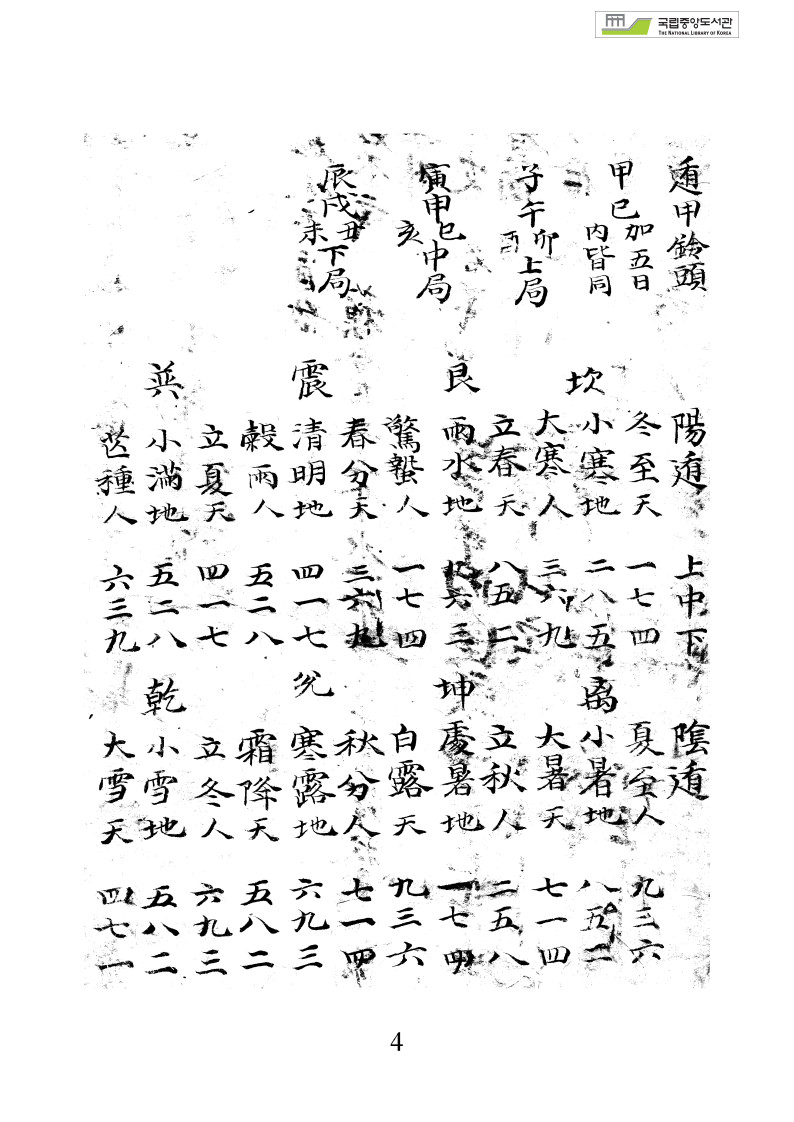 국립중앙도서관
THE NATIONAL LIBRARY OF KOREA
遁甲鈴頭
甲己加五日
內皆同
子午卯酉上局
寅申巳亥中局
辰戌丑未下局
陽遁 上中下
冬至天 一七四
坎 小寒地 二八五
大寒人 三六九
立春天 八五二
艮 雨水地 九六三
驚蟄人 一七四
春分天 三六九
震 清明地 四一七
穀雨人 五二八
立夏天 四一七
巽 小滿地 五二八
芒種人 六三九
陰遁
夏至人 九三六
离 小暑地 八五二
大暑天 七一四
立秋人 二五八
坤 處暑地 一七四
白露天 九三六
秋分人 七一四
兌 寒露地 六九三
霜降天 五八二
立冬人 六九三
乾 小雪地 五八二
大雪天 四七一
4